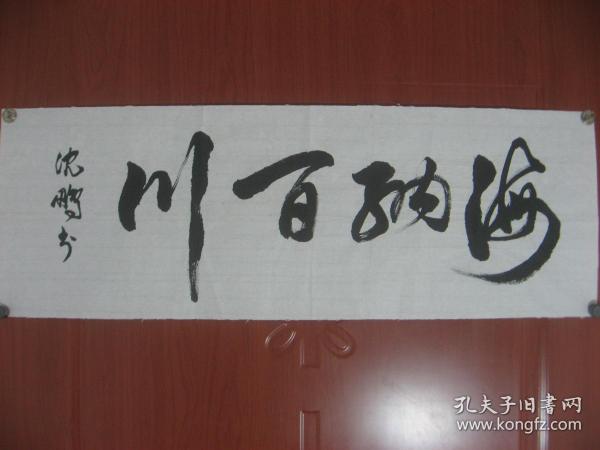 海纳百川
沈鹏书
孔夫子旧书网
www.kongfz.com